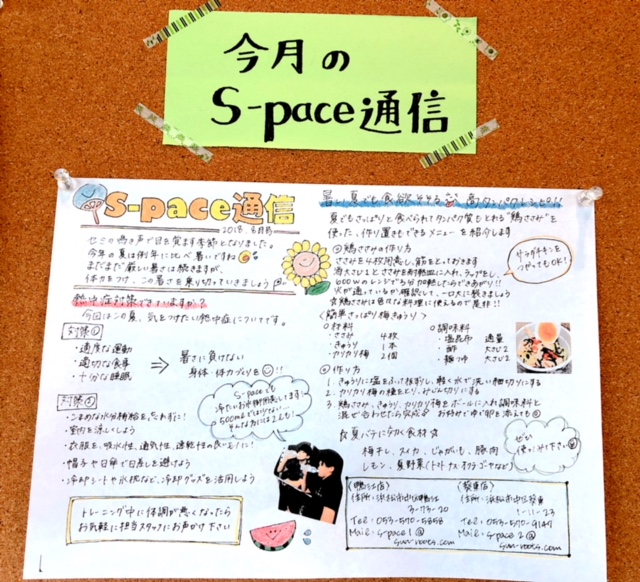 今月の
S-pace通信
S-pace通信
2018. 8月号
セミの鳴き声で目を覚ます季節となりました。
今年の夏は例年に比べ暑いですね
まだまだ厳しい暑さは続きますが、
体力をつけ、この暑さを乗りきっていきましょう
熱中症対策できていますか?
今回はこの夏、気をつけたい熱中症についてです。
対策①
・適度な運動
・適切な食事
・十分な睡眠
⇒ 暑さに負けない
身体・体力づくりを!!
対策②
・こまめな水分補給を忘れずに!
S-paceでも
冷たいお水
・室内を涼しくしよう
・衣服を、吸水性、通気性、速乾性の良いものに!
・帽子や日傘で日差しを避けよう
・冷却シートや氷枕など、冷却グッズを活用しよう
トレーニング中に体調が悪くなったら
お気軽に担当スタッフにお声かけ下さい
暑い夏でも食欲そそる 高タンパクレシピ!!
夏でもさっぱりと食べられてタンパク質もとれる"鶏ささみ"を
使った、作り置きもできるメニューを紹介します
鶏ささみの作り方
ささみを
600wのレンジで
火が通っているか確認して、一口大に裂きましょう
サラダチキンを
つかってもOK!
〈簡単さっぱり梅きゅうり〉
○材料
・ささみ 4枚
・きゅうり 1本
・カリカリ梅 2個
○調味料
・塩昆布 適量
・酢 大さじ2
・麺つゆ 大さじ2
○作り方
1. きゅうりに塩をふって板ずりし、軽く水で洗い細切りにする
2. カリカリ梅の種をとり、みじん切りにする
3. 鶏ささみ、きゅうり、カリカリ梅をボールに入れ調味料と
混ぜ合わせたら完成 お好みでゆで卵を添えても
☆夏バテに効く食材☆
梅干し、スイカ、じゃがいも、豚肉
レモン、夏野菜(トマト、ナス、オクラ、ゴーヤなど)
ぜひ
使ってみて下さい
〈鴨江店〉
住所:浜松市中区鴨江
3-73-20
Tel:053-570-5858
Mail: s-pace1@
sun-roots.com
〈葵東店〉
住所:浜松市中区葵東
1-11-23
Tel:053-570-9147
Mail: s-pace2@
sun-roots.com